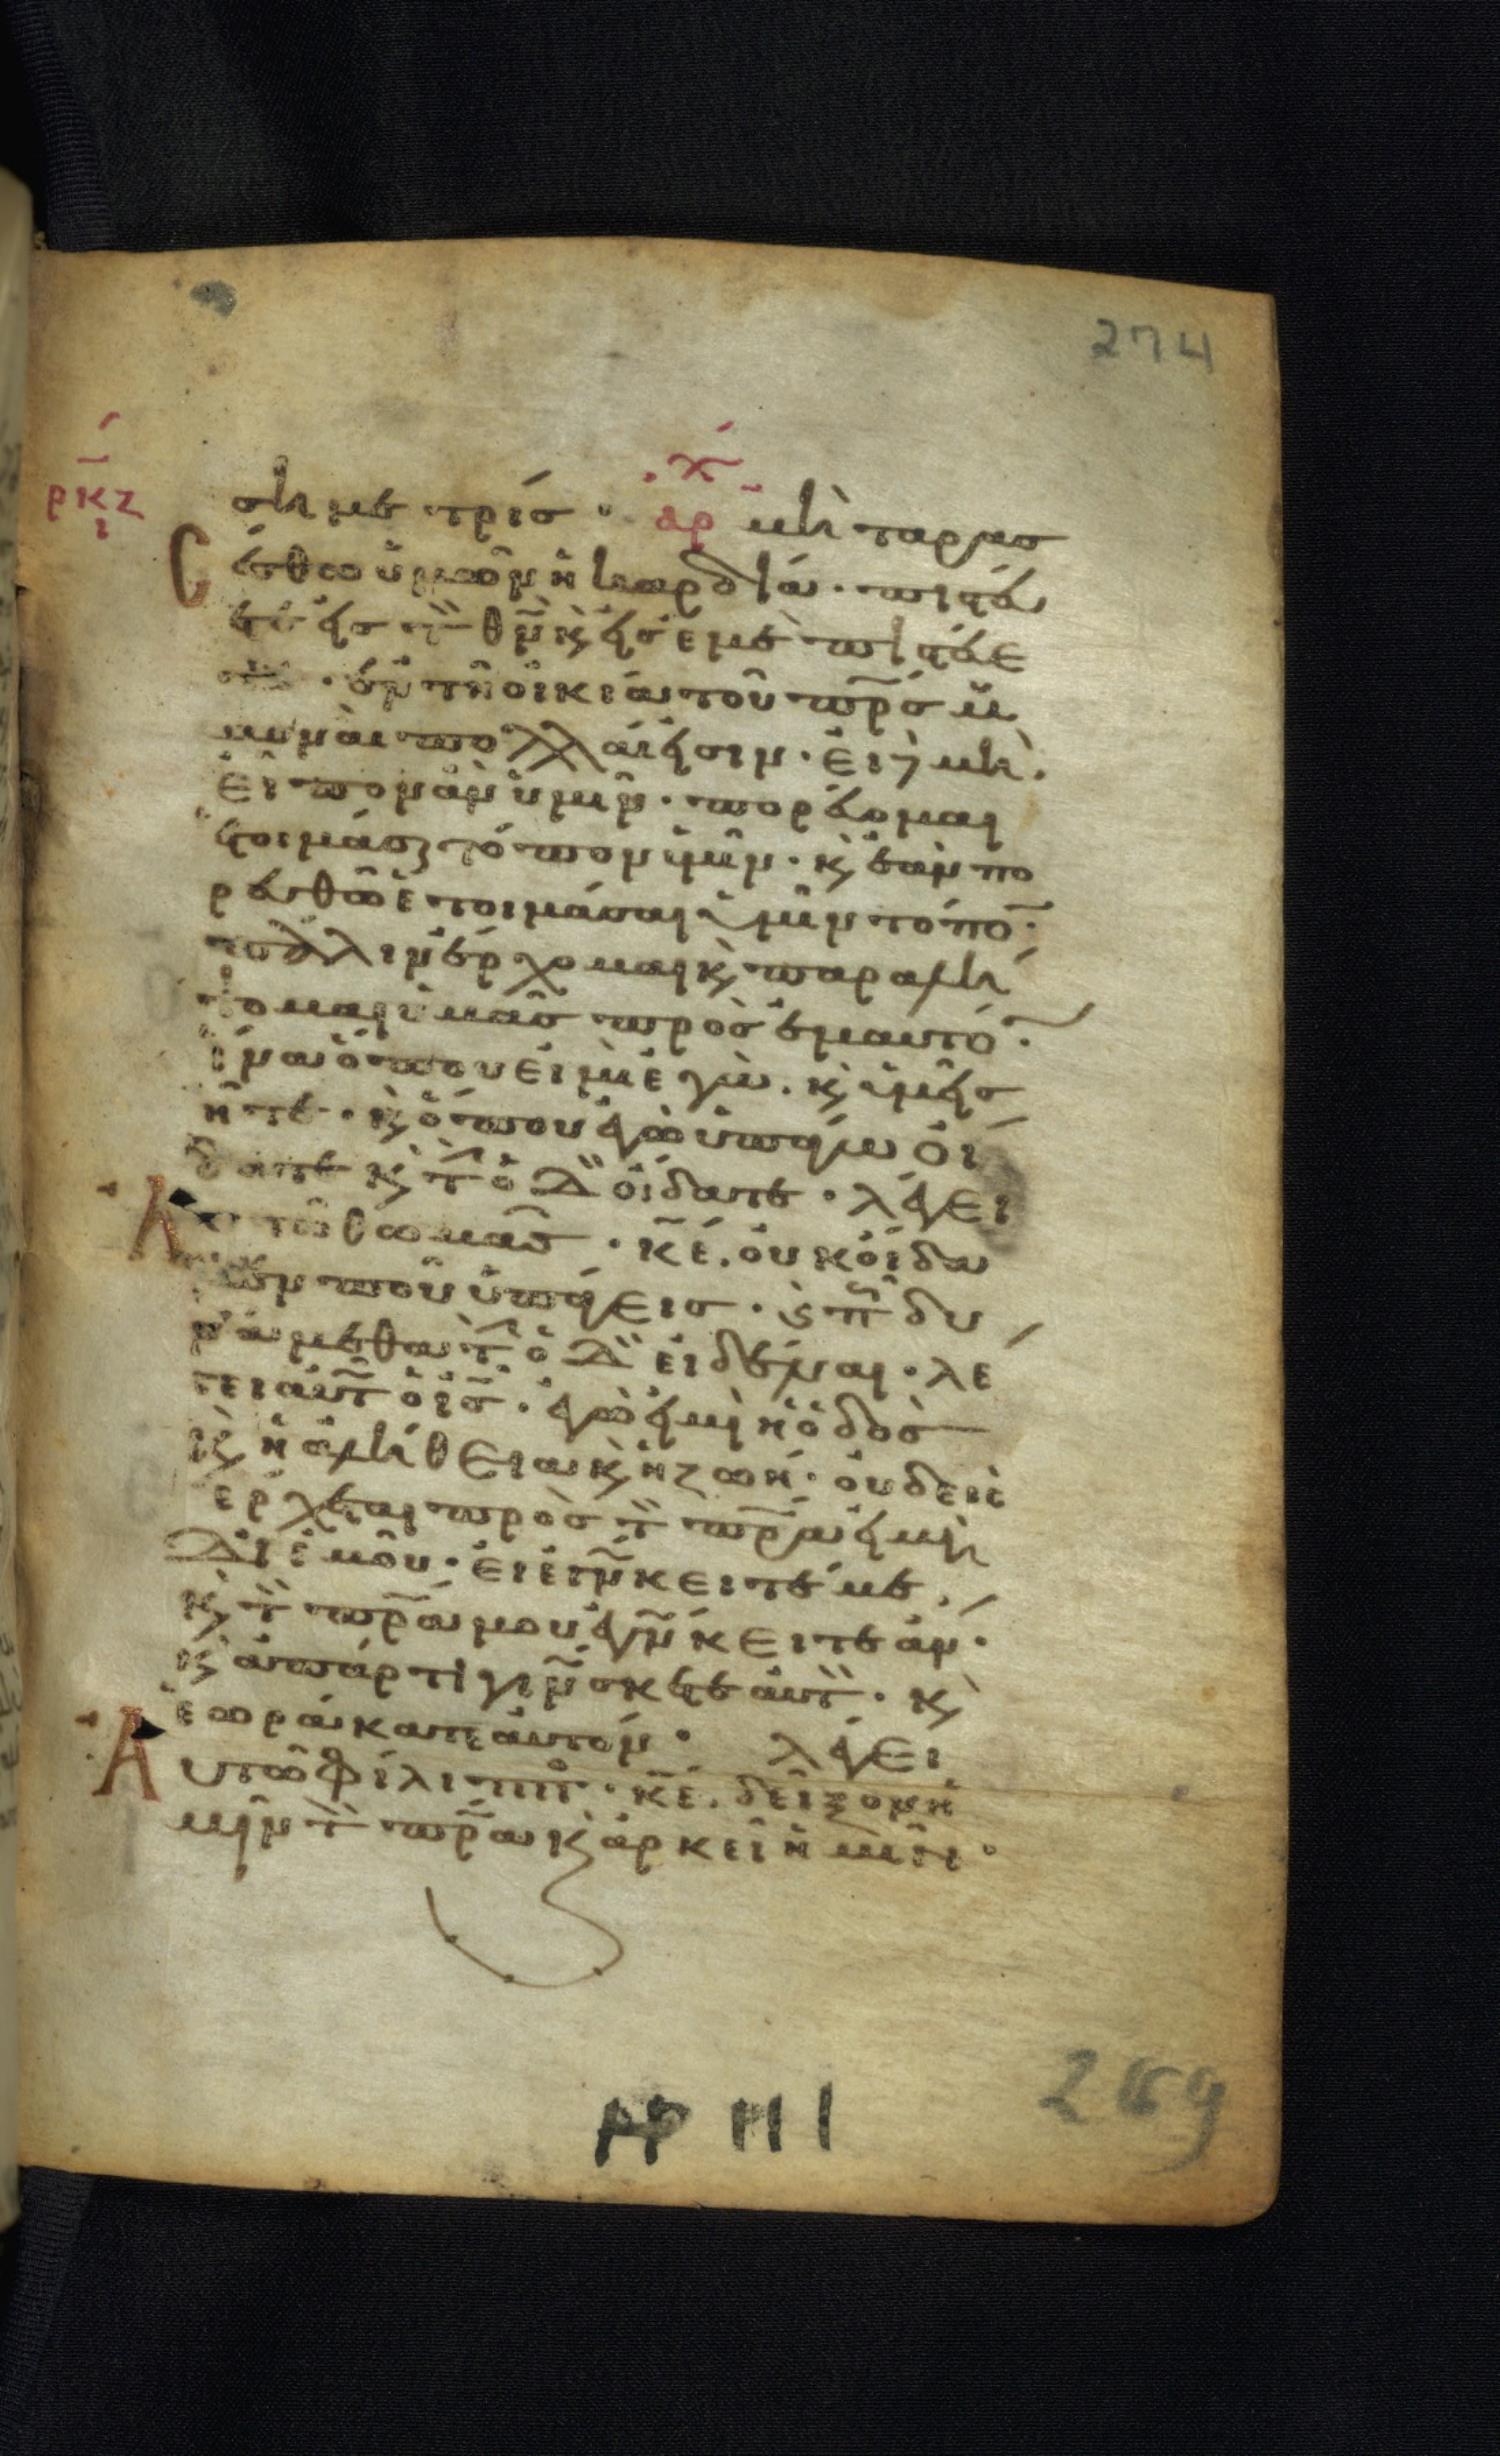 274
ρκζ
ι
ση με τρίσ · ἀρχ μὴ ταρασ
σέσθω ὑμῶν ἡ καρδία · πιστεύ
ετε εἰσ τὸν θν κ εἰσ ἐμὲ πιστεύε
τε · ἐν τῆ οἰκία τοῦ πρσ μου
μοναὶ πολλαί εἰσιν · εἰ δὲ μὴ ·
εἶπον ἂν ὑμῖν · πορεύομαι
ἑτοιμάσαι τόπον ὑμῖν · κ ἐὰν πο
ρευθῶ ἑτοιμάσαι ὑμῖν τόπο ·
πάλιν ἔρχομαι κ παραλή
ψομαι ὑμᾶσ πρὸσ ἐμαυτό ·
ἵνα ὅπου εἰμὶ ἐγὼ . κ ὑμεῖσ
ἦτε · κ ὅπου ἐγὼ ὑπάγω οἴ
δατε κ τ ὁδ οἴδατε · λέγει
Αυτῶ θωμᾶσ · κε . οὐκ οἴδα
μεν ποῦ ὑπάγεισ · κ π δυ
νάμεθα τ ὁδ εἰδέναι · λέ
γει αὐτ ὁ ισ · ἐγὼ εἰμὶ ἡ ὁδὸσ
κ ἡ ἀλήθεια κ ἡ ζωή · οὐδεὶσ
ἔρχεται πρὸσ τ πρα εἰ μὴ
δι ἐμοῦ · εἰ ἐγνκειτέ με ,
κ τ πρα μου ἐγνκειτε ἄν ·
κ ἀπάρτι γινσκετε αὐτ · κ
ἑωράκατε αὐτόν · λέγει
Αυτῶ φίλιππ · κε . δεῖξον ἡ
μῖν τ πρα κ ἀρκεῖ ἡμῖν ·
269